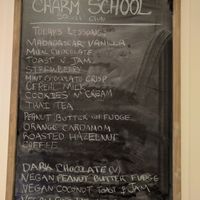 CHARM SCHOOL
TODAYS LESSONS
MADAGASCAR VANILLA
MILK CHOCOLATE
TOAST N JAM
STRAWBERRY
MINT CHOCOLATE CRISP
CEREAL MILK
COOKIES N' CREAM
THAI TEA
PEANUT BUTTER FUDGE
ORANGE CARDAMOM
ROASTED HAZELNUT
COFFEE
DARK CHOCOLATE (V)
VEGAN PEANUT BUTTER FUDGE
VEGAN COCONUT TOAST & JAM
VEGAN